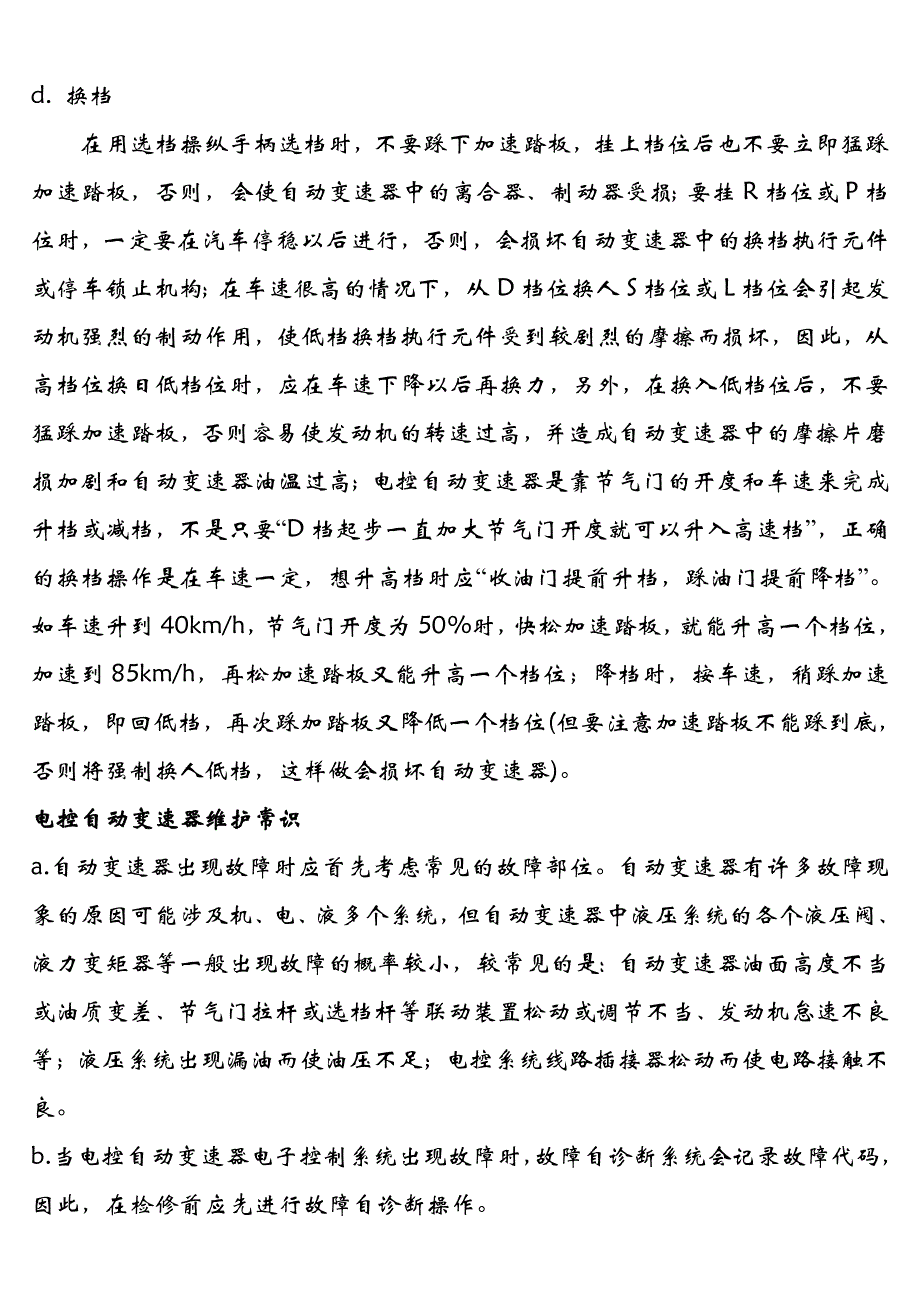 d. 换档
在用选档操纵手柄选档时，不要踩下加速踏板，挂上档位后也不要立即猛踩
加速踏板，否则，会使自动变速器中的离合器、制动器受损；要挂 R 档位或 P 档
位时，一定要在汽车停稳以后进行，否则，会损坏自动变速器中的换档执行元件
或停车锁止机构；在车速很高的情况下，从 D 档位换人 S 档位或 L 档位会引起发
动机强烈的制动作用，使低档换档执行元件受到较剧烈的摩擦而损坏，因此，从
高档位换日低档位时，应在车速下降以后再换力，另外，在换入低档位后，不要
猛踩加速踏板，否则容易使发动机的转速过高，并造成自动变速器中的摩擦片磨
损加剧和自动变速器油温过高；电控自动变速器是靠节气门的开度和车速来完成
升档或减档，不是只要“D 档起步一直加大节气门开度就可以升入高速档”，正确
的换档操作是在车速一定，想升高档时应“收油门提前升档，踩油门提前降档”。
如车速升到 40km/h，节气门开度为 50%时，快松加速踏板，就能升高一个档位，
加速到 85km/h，再松加速踏板又能升高一个档位；降档时，按车速，稍踩加速
踏板，即回低档，再次踩加踏板又降低一个档位(但要注意加速踏板不能踩到底，
否则将强制换人低档，这样做会损坏自动变速器)。
电控自动变速器维护常识
a.自动变速器出现故障时应首先考虑常见的故障部位。自动变速器有许多故障现
象的原因可能涉及机、电、液多个系统，但自动变速器中液压系统的各个液压阀、
液力变矩器等一般出现故障的概率较小，较常见的是：自动变速器油面高度不当
或油质变差、节气门拉杆或选档杆等联动装置松动或调节不当、发动机怠速不良
等；液压系统出现漏油而使油压不足；电控系统线路插接器松动而使电路接触不
良。
b.当电控自动变速器电子控制系统出现故障时，故障自诊断系统会记录故障代码，
因此，在检修前应先进行故障自诊断操作。